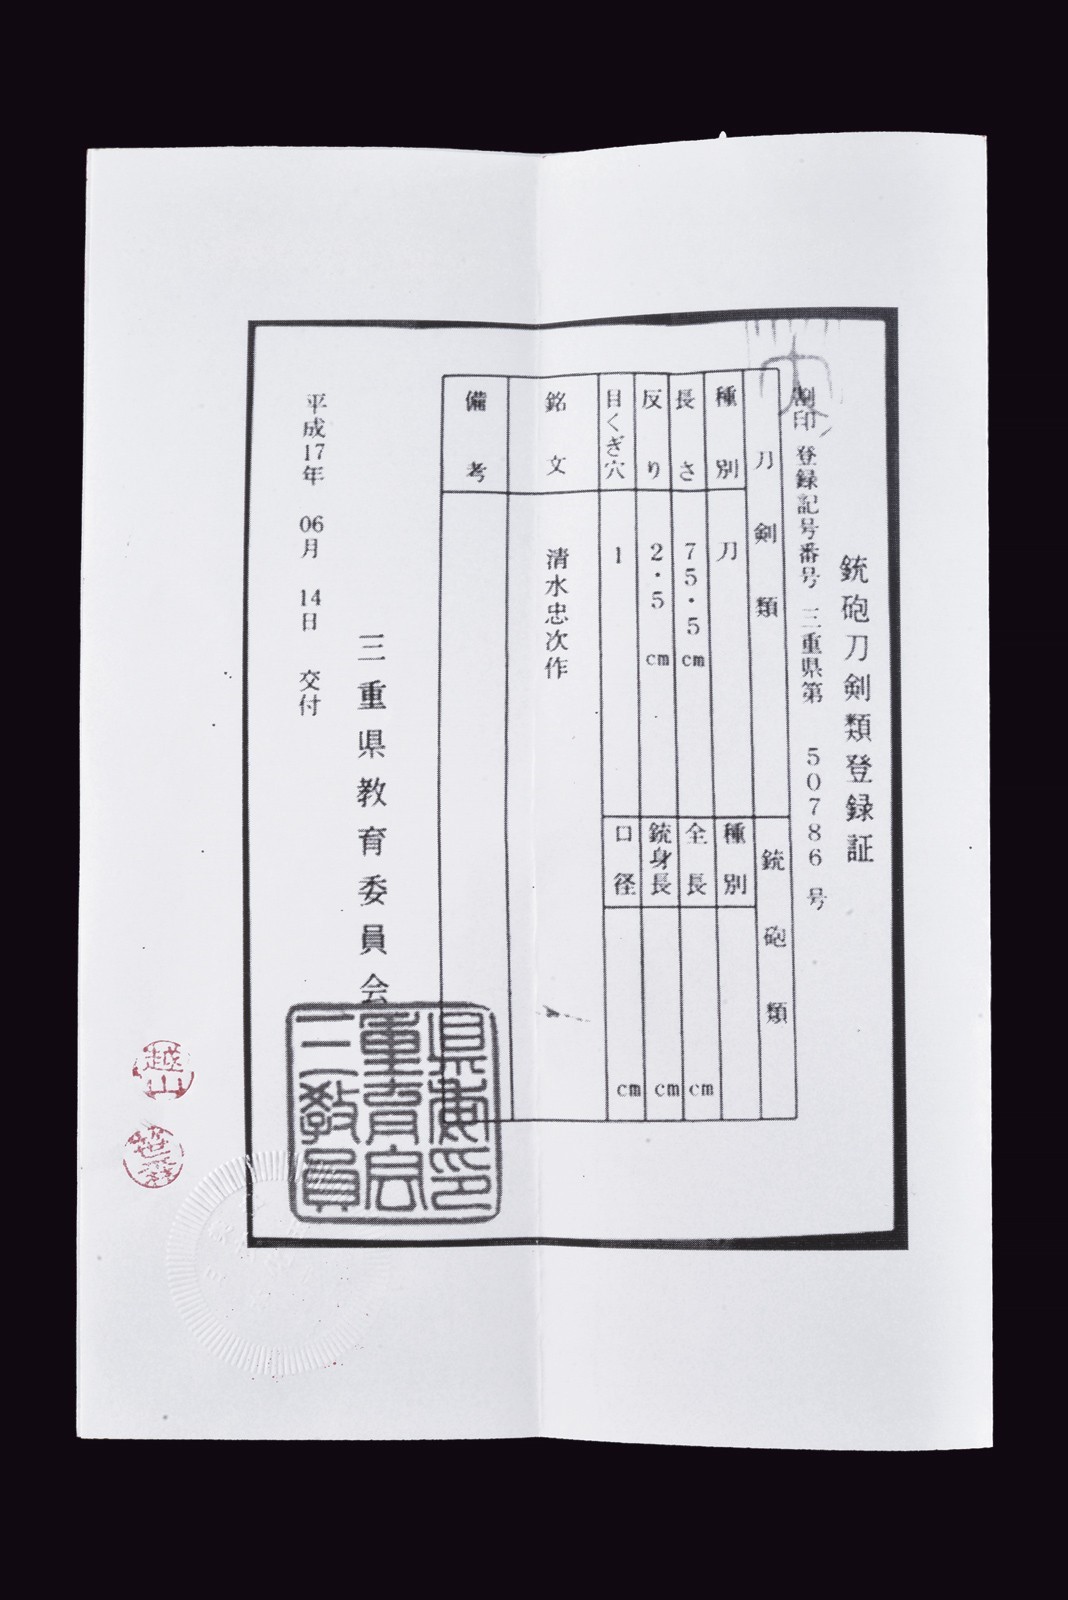 銃砲刀剣類登録証
割印 登録記号番号 三重県第 50786 号
刀剣類
種別 刀
長さ 75.5cm
反り 2.5cm
目くぎ穴 1
銘文 清水忠次作
備考
銃砲類
種別
全長 cm
銃身長 cm
口径 cm
三重県教育委員会
平成17年 06月 14日 交付
越山